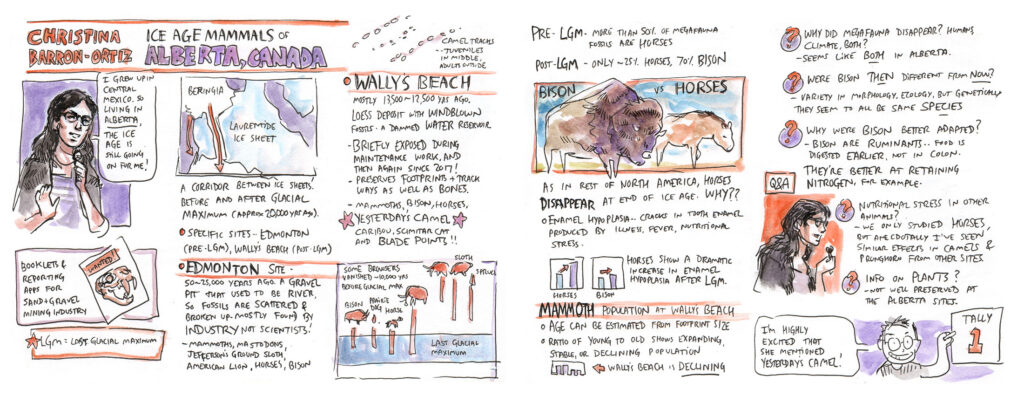 CHRISTINA
BARRON-ORTIZ
ICE AGE MAMMALS OF
ALBERTA, CANADA
I GREW UP IN
CENTRAL
MEXICO. SO
LIVING IN
ALBERTA,
THE ICE
AGE IS
STILL GOING
ON FOR ME!
BERINGIA
LAURENTIDE
ICE SHEET
A CORRIDOR BETWEEN ICE SHEETS.
BEFORE AND AFTER GLACIAL
MAXIMUM (APPROX 20,000 YRS AGO).
SPECIFIC SITES - EDMONTON
(PRE-LGM), WALLY'S BEACH (POST-LGM)
BOOKLETS &
REPORTING
APPS FOR
SAND & GRAVEL
MINING INDUSTRY
WANTED!
LGM = LAST GLACIAL MAXIMUM
EDMONTON SITE -
50-25,000 YEARS AGO. A GRAVEL
PIT THAT USED TO BE RIVER,
SO FOSSILS ARE SCATTERED &
BROKEN UP. MOSTLY FOUND BY
INDUSTRY NOT SCIENTISTS!
- MAMMOTHS, MASTODONS,
JEFFERSON'S GROUND SLOTH,
AMERICAN LION, HORSES, BISON
CAMEL TRACKS
- JUVENILES
IN MIDDLE,
ADULTS OUTSIDE
WALLY'S BEACH
MOSTLY 13,500-12,500 YRS AGO.
LOESS DEPOSIT WITH WINDBLOWN
FOSSILS - A DAMMED WATER RESERVOIR
- BRIEFLY EXPOSED DURING
MAINTENANCE WORK, AND
THEN AGAIN SINCE 2017!
- PRESERVES FOOTPRINTS + TRACK
WAYS AS WELL AS BONES.
- MAMMOTHS, BISON, HORSES,
YESTERDAY'S CAMEL
CARIBOU, SCIMITAR CAT
AND BLADE POINTS!!
SOME BROWSERS
VANISHED ~10,000 YRS
BEFORE GLACIAL MAX
BISON
PRAIRIE
DOG
HORSE
SLOTH
SPRUCE
LAST GLACIAL
MAXIMUM
PRE-LGM - MORE THAN 50% OF MEGAFAUNA
FOSSILS ARE HORSES
POST-LGM - ONLY ~25% HORSES, 70% BISON
BISON VS HORSES
AS IN REST OF NORTH AMERICA, HORSES
DISAPPEAR AT END OF ICE AGE. WHY??
ENAMEL HYPOPLASIA - CRACKS IN TOOTH ENAMEL
PRODUCED BY ILLNESS, FEVER, NUTRITIONAL
STRESS.
HORSES
BISON
HORSES SHOW A DRAMATIC
INCREASE IN ENAMEL
HYPOPLASIA AFTER LGM.
MAMMOTH POPULATION AT WALLY'S BEACH
AGE CAN BE ESTIMATED FROM FOOTPRINT SIZE
RATIO OF YOUNG TO OLD SHOWS EXPANDING,
STABLE, OR DECLINING POPULATION
WALLY'S BEACH IS DECLINING
? WHY DID MEGAFAUNA DISAPPEAR? HUMANS,
CLIMATE, BOTH?
- SEEMS LIKE BOTH IN ALBERTA.
? WERE BISON THEN DIFFERENT FROM NOW?
- VARIETY IN MORPHOLOGY, ECOLOGY, BUT GENETICALLY
THEY SEEM TO ALL BE SAME SPECIES
? WHY WERE BISON BETTER ADAPTED?
- BISON ARE RUMINANTS.. FOOD IS
DIGESTED EARLIER, NOT IN COLON.
THEY'RE BETTER AT RETAINING
NITROGEN, FOR EXAMPLE.
Q&A
? NUTRITIONAL STRESS IN OTHER
ANIMALS?
- WE ONLY STUDIED HORSES,
BUT ANECDOTALLY I'VE SEEN
SIMILAR EFFECTS IN CAMELS &
PRONGHORN FROM OTHER SITES.
? INFO ON PLANTS?
- NOT WELL PRESERVED AT
THE ALBERTA SITES.
I'M HIGHLY
EXCITED THAT
SHE MENTIONED
YESTERDAY'S CAMEL!
TALLY
1